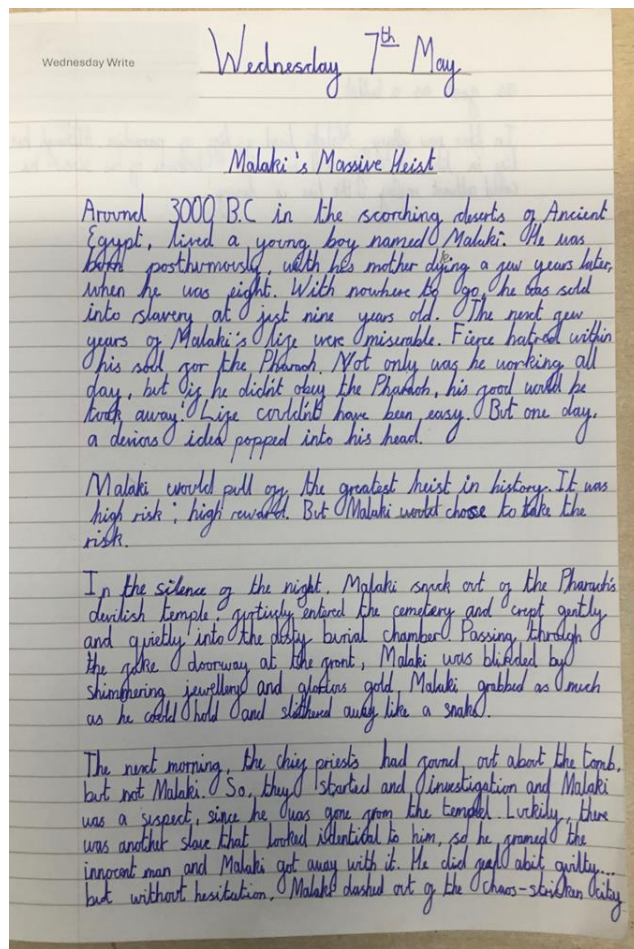 Wednesday Write
Wednesday 7th May
Malaki's Massive Heist
Around 3000 B.C in the scorching deserts of Ancient
Egypt, lived a young boy named Malaki. He was
born posthumously, with his mother dying a few years later,
when he was eight. With nowhere to go, he was sold
into slavery at just nine years old. The next few
years of Malaki's life were miserable. Fierce hatred within
his soul for the Pharaoh. Not only was he working all
day, but if he didn't obey the Pharaoh, his food would be
took away. Life couldn't have been easy. But one day,
a devious idea popped into his head.
Malaki would pull off the greatest heist in history. It was
high risk ; high reward. But Malaki would chose to take the
risk.
In the silence of the night, Malaki snuck out of the Pharaoh's
devilish temple, furtively entered the cemetery and crept gently
and quietly into the dusty burial chamber. Passing through
the fake doorway at the front, Malaki was blinded by
shimmering jewellery and glorious gold. Malaki grabbed as much
as he could hold and slithered away like a snake.
The next morning, the chief priests had found out about the tomb,
but not Malaki. So, they started and investigation and Malaki
was a suspect, since he was gone from the temple. Luckily, there
was another slave that looked identical to him, so he framed the
innocent man and Malaki got away with it. He did feel abit guilty...
but without hesitation, Malaki dashed out of the chaos-stricken city